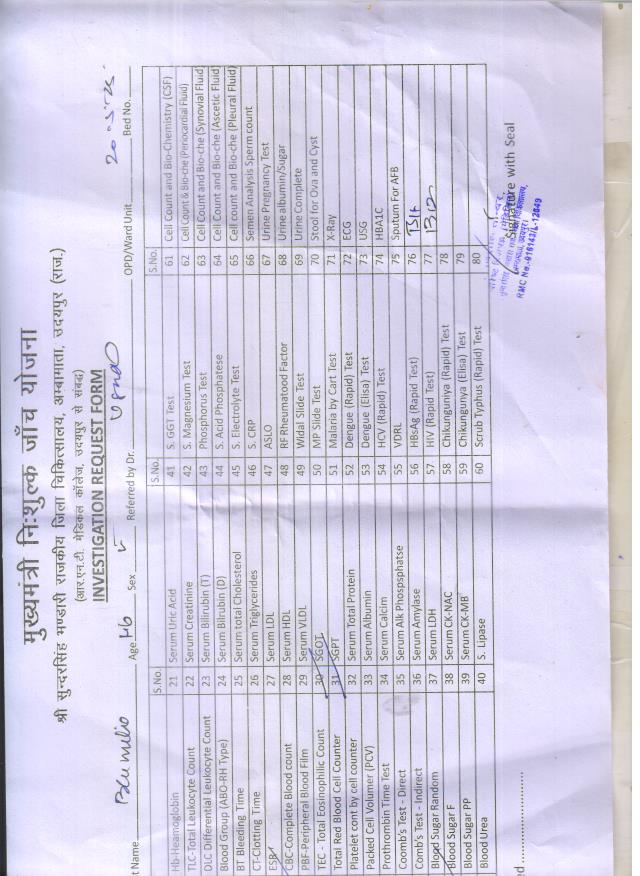 मुख्यमंत्री निःशुल्क जाँच योजना
श्री सुन्दरसिंह भण्डारी राजकीय जिला चिकित्सालय, अम्बामाता, उदयपुर (राज.)
(आर.एन.टी. मेडिकल कॉलेज, उदयपुर से संबद्ध)
INVESTIGATION REQUEST FORM
t Name Age 46 Sex Referred by Dr. OPD/Ward Unit Bed No.
S.No. S.No. S.No.
Hb-Heamoglobin 21 Serum Uric Acid 41 S. GGT Test 61 Cell Count and Bio-Chemistry (CSF)
TLC-Total Leukocyte Count 22 Serum Creatinine 42 S. Magnesium Test 62 Cell Count & Bio-che (Periocardial Fluid)
DLC Differential Leukocyte Count 23 Serum Bilirubin (T) 43 Phosphorus Test 63 Cell Count and Bio-che (Synovial Fluid)
Blood Group (ABO-RH Type) 24 Serum Bilrubin (D) 44 S. Acid Phosphatese 64 Cell Count and Bio-che (Ascetic Fluid)
BT Bleeding Time 25 Serum total Cholesterol 45 S. Electrolyte Test 65 Cell count and Bio-che (Pleural Fluid)
CT-Clotting Time 26 Serum Triglycerides 46 S. CRP 66 Semen Analysis Sperm count
ESR 27 Serum LDL 47 ASLO 67 Urine Pregnancy Test
CBC-Complete Blood count 28 Serum HDL 48 RF Rheumatood Factor 68 Urine albumin/Sugar
PBF-Peripheral Blood Film 29 Serum VLDL 49 Widal Slide Test 69 Urine Complete
TEC - Total Eosinophilic Count 30 SGOT 50 MP Slide Test 70 Stool for Ova and Cyst
Total Red Blood Cell Counter 31 SGPT 51 Malaria by Cart Test 71 X-Ray
Platelet cont by cell counter 32 Serum Total Protein 52 Dengue (Rapid) Test 72 ECG
Packed Cell Volumer (PCV) 33 Serum Albumlin 53 Dengue (Elisa) Test 73 USG
Prothrombin Time Test 34 Serum Calcim 54 HCV (Rapid) Test 74 HBA1C
Coomb's Test - Direct 35 Serum Alk Phospsphatse 55 VDRL 75 Sputum For AFB
Comb's Test - Indirect 36 Serum Amylase 56 HBsAg (Rapid Test) 76
Blood Sugar Random 37 Serum LDH 57 HIV (Rapid Test) 77 B12
Blood Sugar F 38 Serum CK-NAC 58 Chikunguniya (Rapid) Test 78
Blood Sugar PP 39 Serum CK-MB 59 Chikungunya (Elisa) Test 79
Blood Urea 40 S. Lipase 60 Scrub Typhus (Rapid) Test 80
Signature with Seal